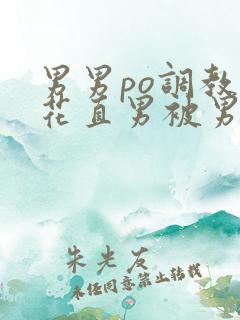 男男po調教
花直男被男
朱光友
未经同意禁止转载